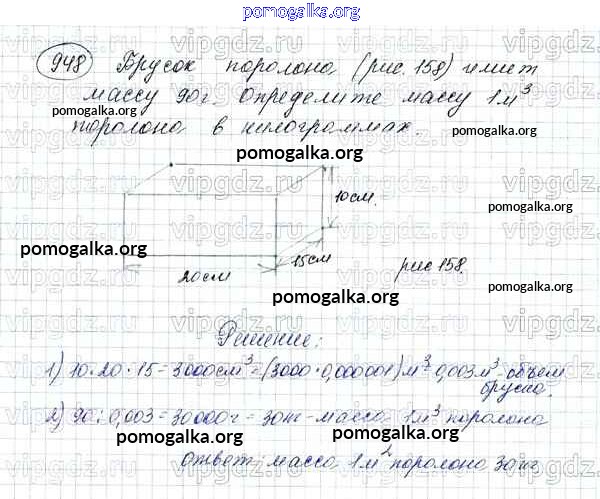 pomogalka.org
948 Брусок поролона (рис. 158) имеет
массу 90 г. Определите массу 1 м³
поролона в килограммах.
pomogalka.org
pomogalka.org
pomogalka.org
10 см.
pomogalka.org
pomogalka.org
15 см
20 см
рис 158.
pomogalka.org
Решение:
1) 10·20·15=3000см³=(3000·0,000001)м³=0,003м³-объем
бруска.
2) 90:0,003=30000г=30кг-масса 1м³ поролона
pomogalka.org
pomogalka.org
ответ: масса 1м² поролона 30кг.
pomogalka.org